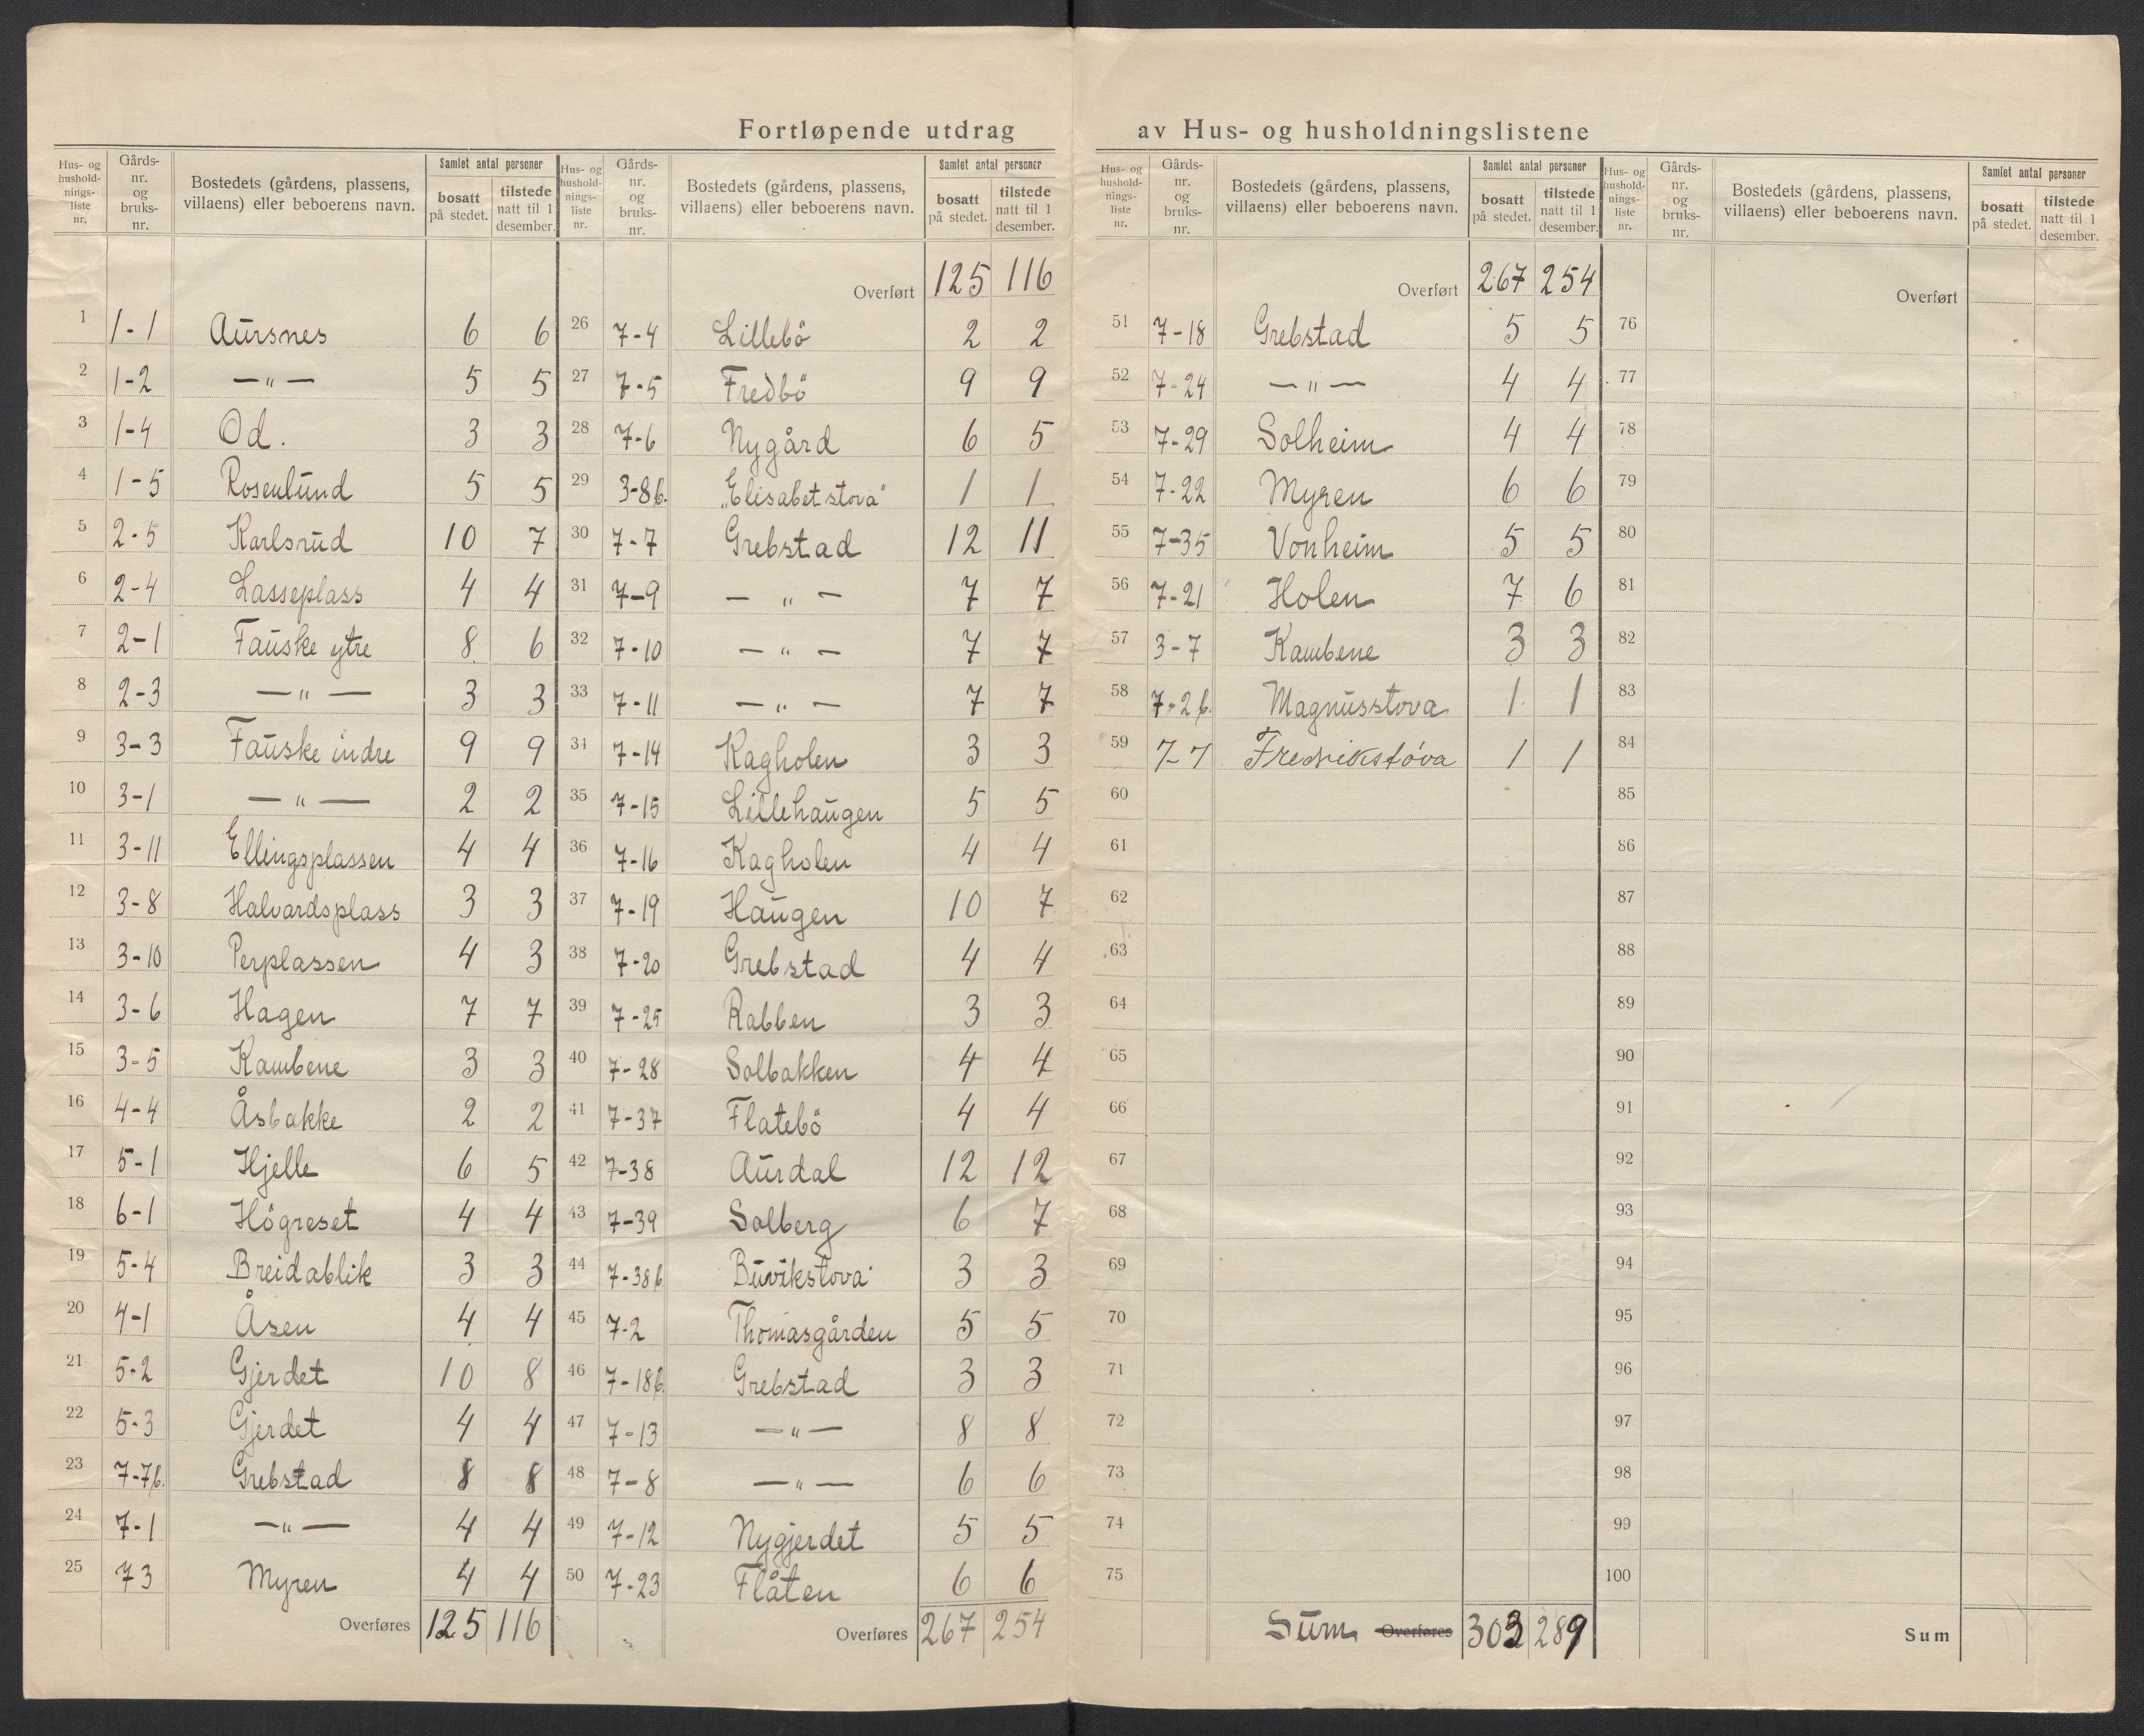 Fortløpende utdrag av Hus- og husholdningslistene
Hus- og hushold-nings-liste nr. | Gårds-nr. og bruks-nr. | Bostedets (gårdens, plassens, villaens) eller beboerens navn. | Samlet antal personer | bosatt på stedet. | tilstede natt til 1 desember.
1 1-1 Aursnes 6 6
2 1-2 —"— 5 5
3 1-4 Od. 3 3
4 1-5 Rosenlund 5 5
5 2-5 Karlsrud 10 7
6 2-4 Lasseplass 4 4
7 2-1 Fauske ytre 8 6
8 2-3 —"— 3 3
9 3-3 Fauske indre 9 9
10 3-1 —"— 2 2
11 3-11 Ellingsplassen 4 4
12 3-8 Halvardsplass 3 3
13 3-10 Perplassen 4 3
14 3-6 Hagen 7 7
15 3-5 Kambene 3 3
16 4-4 Åsbakke 2 2
17 5-1 Hjelle 6 5
18 6-1 Högreset 4 4
19 5-4 Breidablik 3 3
20 4-1 Åsen 4 4
21 5-2 Gjerdet 10 8
22 5-3 Gjerdet 4 4
23 7-7b. Grebstad 8 8
24 7-1 —"— 4 4
25 7 3 Myren 4 4
Overføres 125 116
Hus- og hushold-nings-liste nr. | Gårds-nr. og bruks-nr. | Bostedets (gårdens, plassens, villaens) eller beboerens navn. | Samlet antal personer | bosatt på stedet. | tilstede natt til 1 desember.
Overført 125 116
26 7-4 Lillebö 2 2
27 7-5 Fredbö 9 9
28 7-6 Nygård 6 5
29 3-8b. „Elisabetstova" 1 1
30 7-7 Grebstad 12 11
31 7-9 —"— 7 7
32 7-10 —"— 7 7
33 7-11 —"— 7 7
34 7-14 Kagholen 3 3
35 7-15 Lillehaugen 5 5
36 7-16 Kagholen 4 4
37 7-19 Haugen 10 7
38 7-20 Grebstad 4 4
39 7-25 Rabben 3 3
40 7-28 Solbakken 4 4
41 7-37 Flatebö 4 4
42 7-38 Aurdal 12 12
43 7-39 Solberg 6 7
44 7-38b Buvikstova 3 3
45 7-2 Thomasgården 5 5
46 7-18b. Grebstad 3 3
47 7-13 —"— 8 8
48 7-8 —"— 6 6
49 7-12 Nygjerdet 5 5
50 7-23 Flåten 6 6
Overføres 267 254
Hus- og hushold-nings-liste nr. | Gårds-nr. og bruks-nr. | Bostedets (gårdens, plassens, villaens) eller beboerens navn. | Samlet antal personer | bosatt på stedet. | tilstede natt til 1 desember.
Overført 267 254
51 7-18 Grebstad 5 5
52 7-24 —"— 4 4
53 7-29 Solheim 4 4
54 7-22 Myren 6 6
55 7-35 Vonheim 5 5
56 7-21 Holen 7 6
57 3-7 Kambene 3 3
58 7-2b. Magnusstova 1 1
59 7-7 Fredrikstova 1 1
60
61
62
63
64
65
66
67
68
69
70
71
72
73
74
75
Sum Overføres 303 289
Hus- og hushold-nings-liste nr. | Gårds-nr. og bruks-nr. | Bostedets (gårdens, plassens, villaens) eller beboerens navn. | Samlet antal personer | bosatt på stedet. | tilstede natt til 1 desember.
Overført
76
77
78
79
80
81
82
83
84
85
86
87
88
89
90
91
92
93
94
95
96
97
98
99
100
Sum